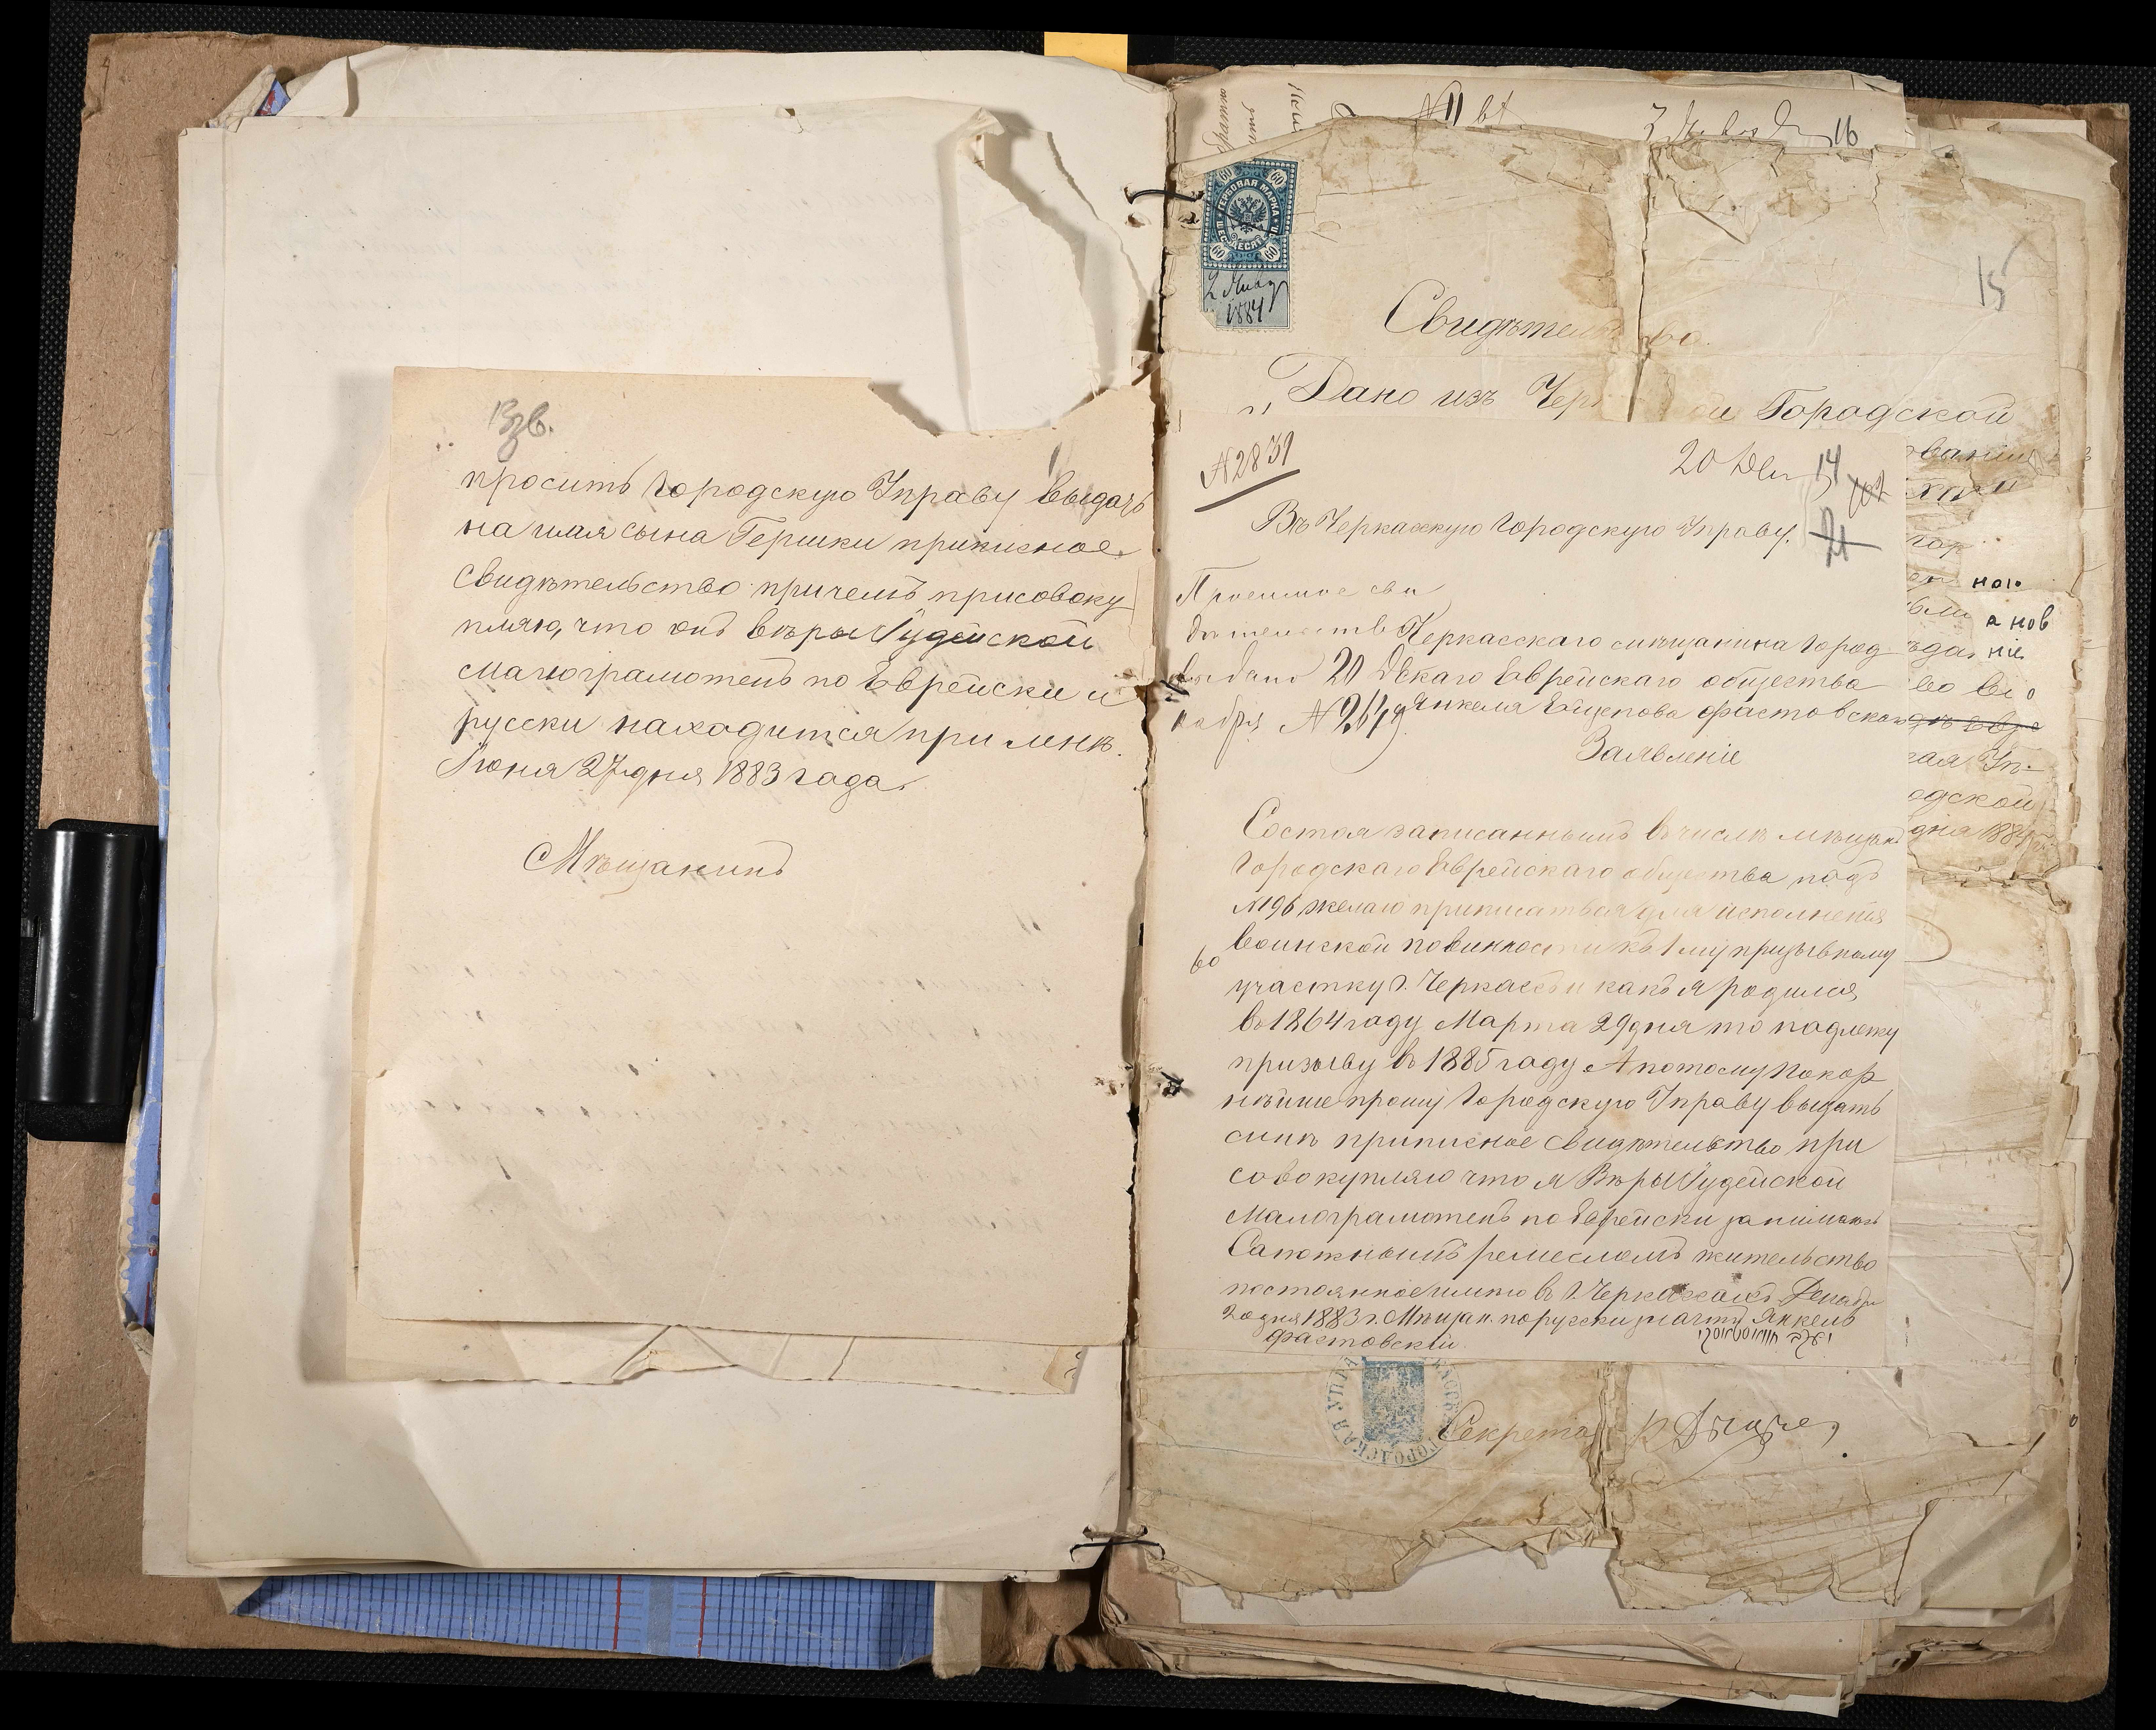 13 зв.
просить Городскую Управу выдать
на имя сына Гершки приписное
свидѣтельство причемъ присовоку
пляю, что онъ вѣры Іудейской
малограмотенъ по Еврейски и
русски находится при мнѣ.
Іюня 27 дня 1883 года.
Мѣщанинъ
16
60 60
ГЕРБОВАЯ МАРКА
60 60
2 Янва
1884
15
Свидѣтель
Дано изъ Чер ой Городской
№ 2839
20 Дек 14
Въ Черкасскую Городскую Управу.
Просимое сви
дѣтельство
выдано 20 Де
кабря № 2649
Черкасскаго мѣщанина Город
скаго Еврейскаго общества
Янкеля Фастовскаго
Заявленіе
Состоя записаннымъ въ числѣ мѣщанъ
Городскаго Еврейскаго общества подъ
№ 196 желаю приписаться для исполненія
воинской повинности къ 1 му призывному
участку г. Черкассы и какъ я родился
въ 1864 году Марта 29 дня то подлежу
призыву въ 1885 году А потому Покор
нѣйше прошу Городскую Управу выдать
мнѣ приписное свидѣтельство при
совокупляю что я Вѣры Іудейской
Малограмотенъ по Еврейски занимаюсь
Сапожнымъ ремесломъ жительство
постоянное имѣю въ г. Черкассахъ Декабря
20 дня 1883 г. Мѣщан. по русски значитъ Янкель
Фастовскій
ною
а нов
ніе
одской
дня 188
ГОРОДСКАЯ УПРА
Секрета